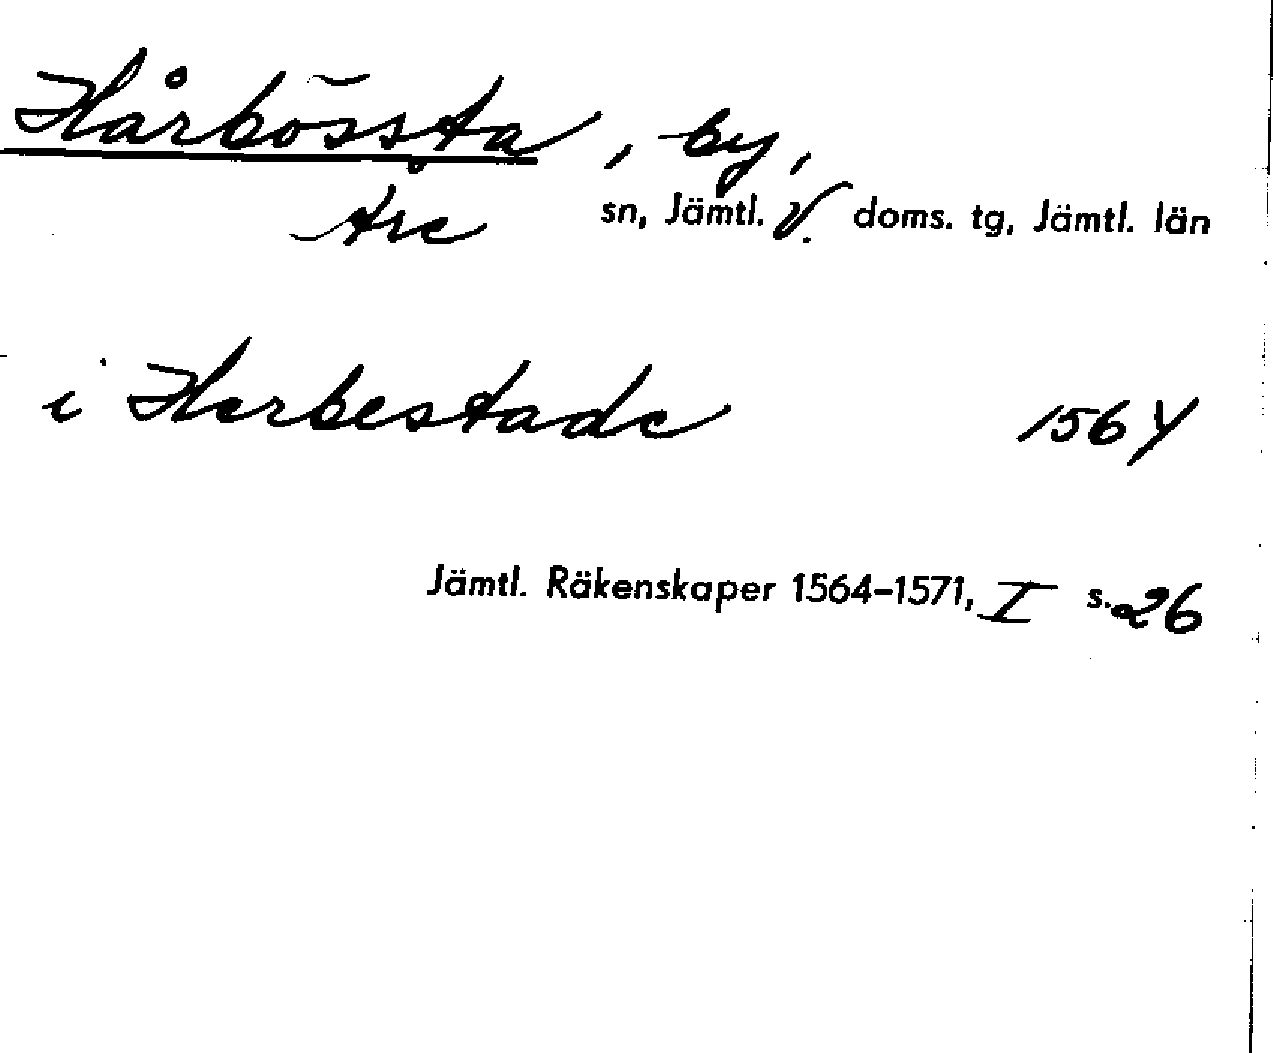 Hårbössta, by,
Åre sn, Jämtl. V. doms. tg, Jämtl. län
i Herbestade 1564
Jämtl. Räkenskaper 1564–1571, I s. 26